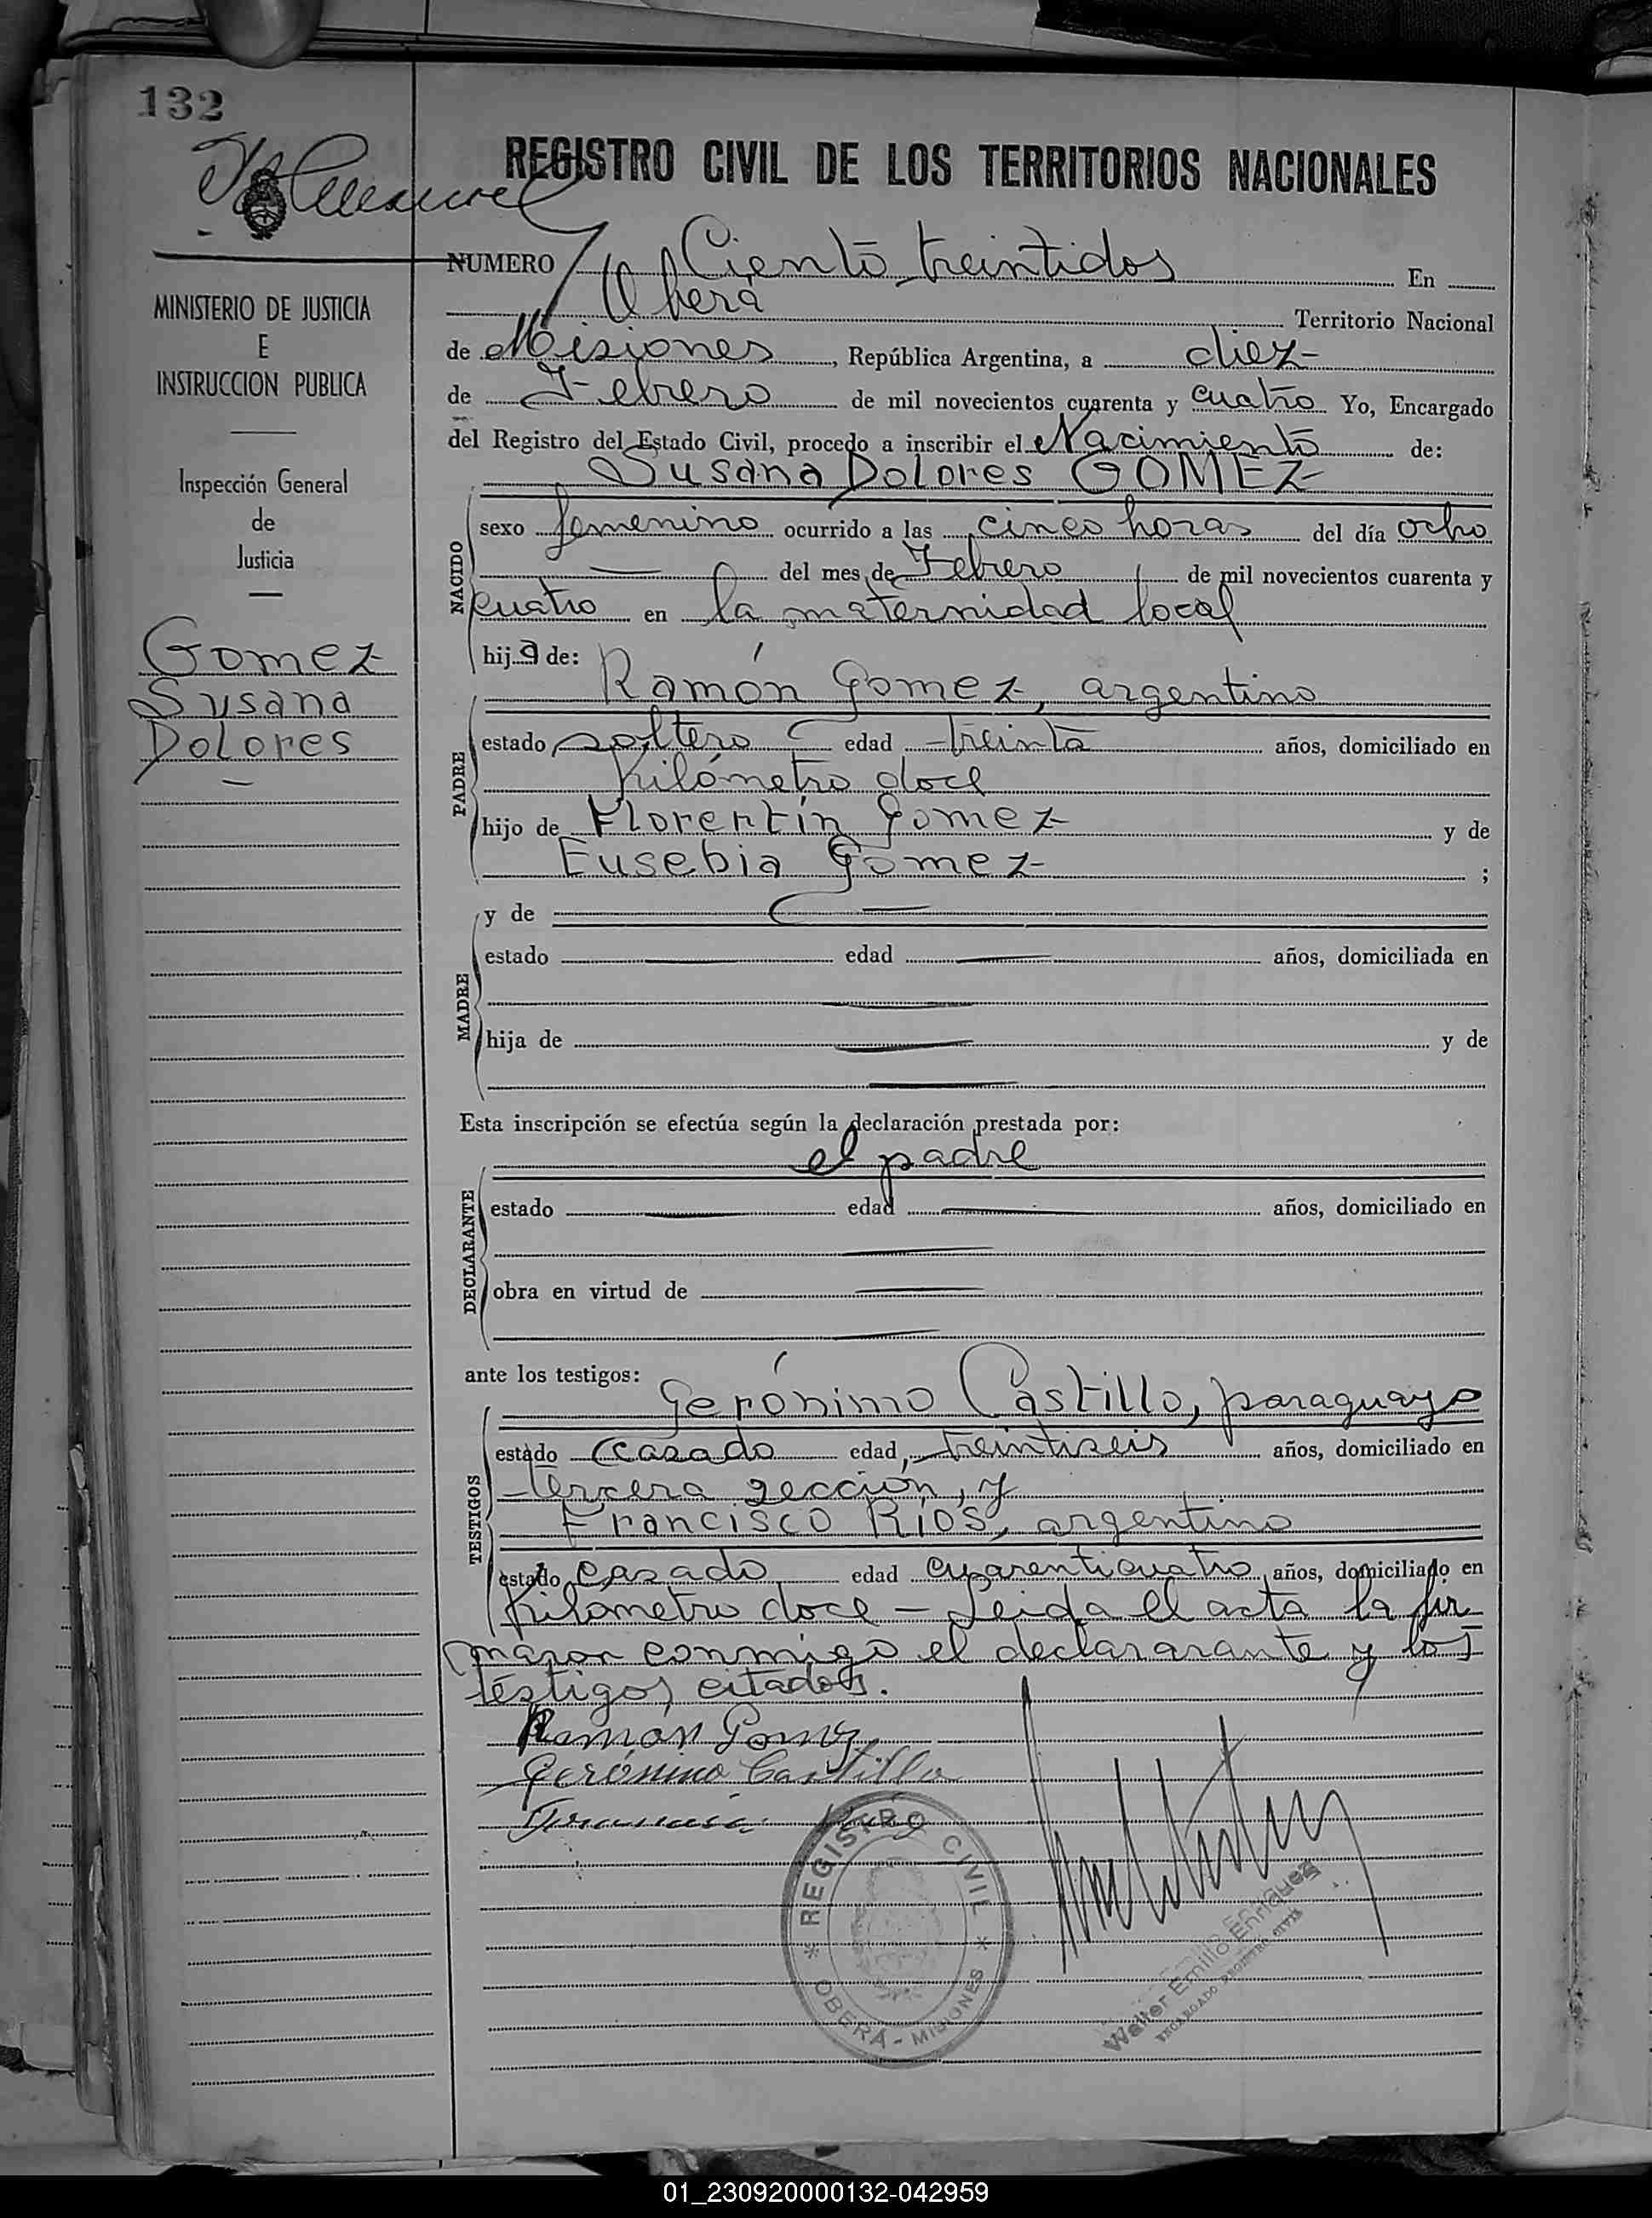 132
REGISTRO CIVIL DE LOS TERRITORIOS NACIONALES
NUMERO Ciento treintidos En
Oberá Territorio Nacional
de Misiones, República Argentina, a diez
de Febrero de mil novecientos cuarenta y cuatro Yo, Encargado
del Registro del Estado Civil, procedo a inscribir el Nacimiento de:
Susana Dolores GOMEZ
MINISTERIO DE JUSTICIA
E
INSTRUCCION PUBLICA
Inspección General
de
Justicia
Gomez
Susana
Dolores
NACIDO
sexo femenino ocurrido a las cinco horas del día ocho
del mes de Febrero de mil novecientos cuarenta y
cuatro en la maternidad local
hija de:
PADRE
Ramón Gomez, argentino
estado soltero edad treinta años, domiciliado en
kilómetro doce
hijo de Florentín Gomez y de
Eusebia Gomez ;
MADRE
y de
estado edad años, domiciliada en
hija de y de
Esta inscripción se efectúa según la declaración prestada por:
el padre
DECLARANTE
estado edad años, domiciliado en
obra en virtud de
ante los testigos:
TESTIGOS
Gerónimo Castillo, paraguayo
estado casado edad treintiseis años, domiciliado en
tercera sección, y
Francisco Ríos, argentino
estado casado edad cuarenticuatro años, domiciliado en
kilómetro doce - Leida el acta la fir
maron conmigo el declararante y los
testigos citados.
Ramón Gomez
Gerónimo Castillo
REGISTRO CIVIL
OBERÁ - MISIONES
Walter Emilio Enriquez
ENCARGADO REGISTRO CIVIL
01_230920000132-042959